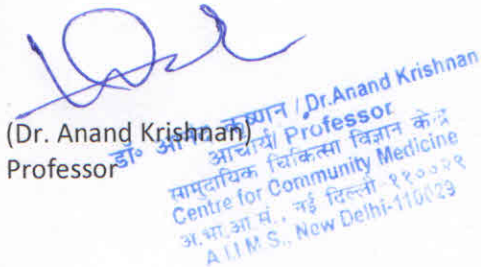 (Dr. Anand Krishnan)
Professor
डॉ० आनन्द कृष्णन / Dr.Anand Krishnan
आचार्य/ Professor
सामुदायिक चिकित्सा विज्ञान केन्द्र
Centre for Community Medicine
अ.भा.आ.सं., नई दिल्ली-११००२९
A.I.I.M.S., New Delhi-110029